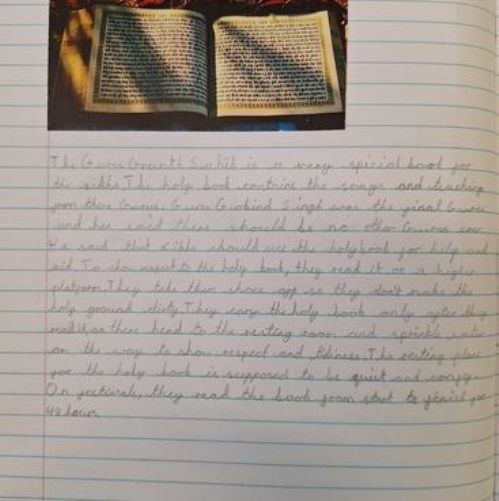 The Guru Granth Sahib is a very spicial book for
the sikhs. The holy book contains the songs and teaching
from there Gurus. Guru Gobind Singh was the final Guru
and he said there should be no other Gurus ever.
He said that sikhs should use the holy book for help and
aid. To show respect to the holy book, they read it on a higher
platform. They take there shoes off so they don't make the
holy ground dirty. They carry the holy book only after they
it on there head to the resting room and sprinkle water
on the way to show respect and tidiness. The resting place
for the holy book is supposed to be quiet and comfy.
On festivals, they read the book from start to finish for
48 hours.